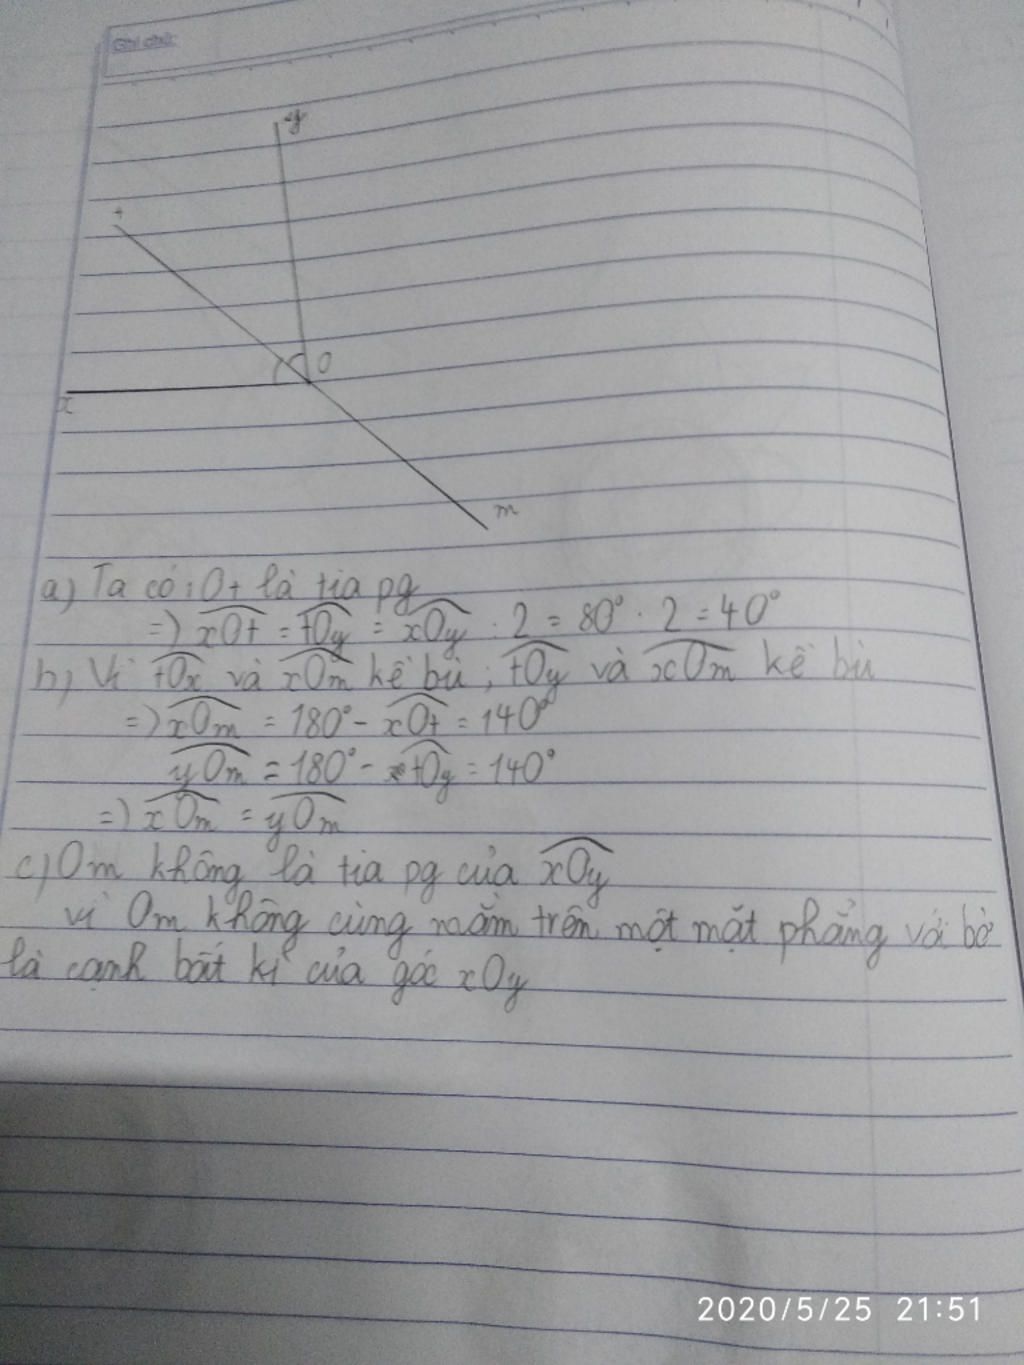 Ghi chú:
y
t
O
x
m
a) Ta có: Ot là tia pg
=) xOt = tOy = xOy . 2 = 80° . 2 = 40°
b) Vì tOx và xOm kề bù ; tOy và xOm kề bù
=) xOm = 180° - xOt = 140°
yOm = 180° - tOy = 140°
=) xOm = yOm
c) Om không là tia pg của xOy
vì Om không cùng nằm trên một mặt phẳng với bờ
là cạnh bất kì của góc xOy
2020/5/25 21:51